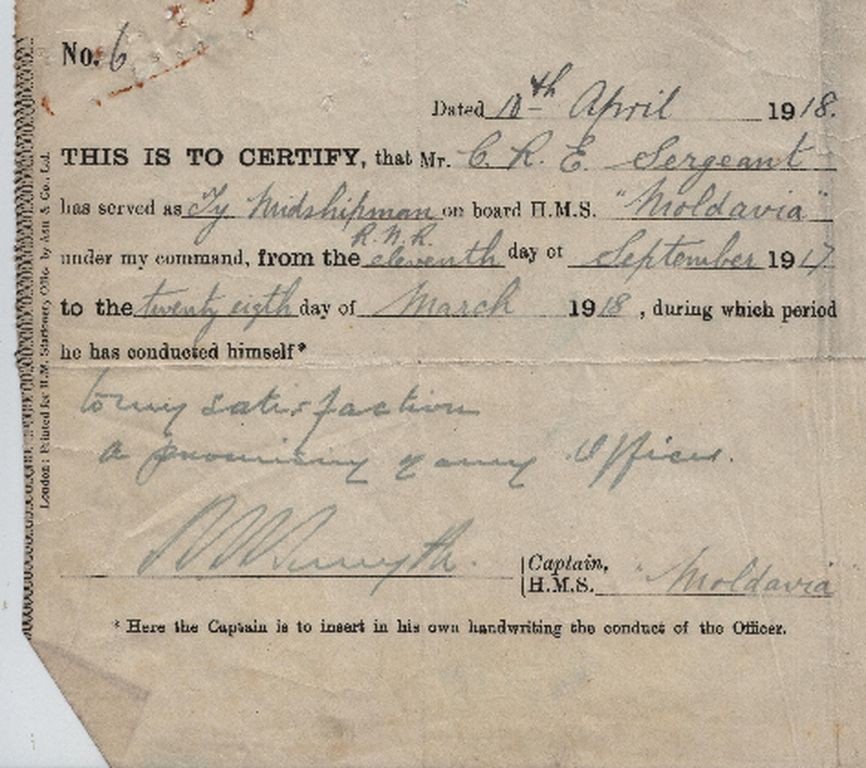 No. 6
Dated 10th April 1918.
THIS IS TO CERTIFY, that Mr. C. R. E. Sergeant
has served as Ty Midshipman on board H.M.S. "Moldavia"
R.N.R.
under my command, from the eleventh day of September 1917
to the twenty eigth day of March 1918, during which period
he has conducted himself*
to my satisfaction
a promising young Officer.
Smyth.
Captain,
H.M.S. "Moldavia
* Here the Captain is to insert in his own handwriting the conduct of the Officer.
London: Printed for H.M. Stationery Office by & Co., Ltd.